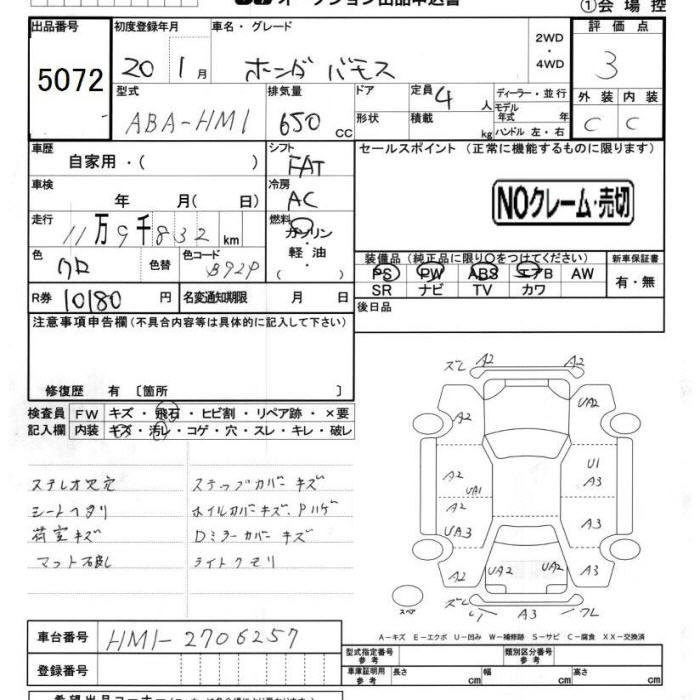 オークション出品申込書
①会場控
出品番号 5072
初度登録年月 20 1月
車名・グレード ホンダ バモス
2WD・4WD
評価点 3
外装 内装
C C
型式 ABA-HM1
排気量 650 CC
ドア 形状
定員 4人
積載 kg
ディーラー・並行
モデル年式 年
ハンドル 左・右
車歴 自家用・( )
シフト FAT
セールスポイント (正常に機能するものに限ります)
車検 年 月( 日)
冷房 AC
NOクレーム・売切
走行 11万9千832km
燃料 ガソリン・軽油・( )
色 クロ 色替
色コード B92P
装備品 (純正品に限り○をつけてください)
新車保証書 有・無
PS PW ABS エアB AW
SR ナビ TV カワ
R券 10180円
名変通知期限 月 日
後日品
注意事項申告欄(不具合内容等は具体的に記入して下さい)
修復歴 有 〔箇所 〕
検査員記入欄
FW キズ・飛石・ヒビ割・リペア跡・×要
内装 キズ・汚レ・コゲ・穴・スレ・キレ・破レ
ステレオ欠品 ステップカバーキズ
シートヘタリ ホイルカバーキズ、Pハゲ
荷室キズ Dミラーカバーキズ
マット欠品 ライトクモリ
ズレ A2 A2
A2 UA2
A2 U1
UA1 A3
A2
UA3 A3
A2 UA2 UA2 A3
スペア ズレ A3 ワレ
A-キズ E-エクボ U-凹み W-補修跡 S-サビ C-腐食 XX-交換済
車台番号 HM1-2706257
登録番号
型式指定番号 参考
類別区分番号 参考
車庫証明用 参考 長さ 幅 高さ